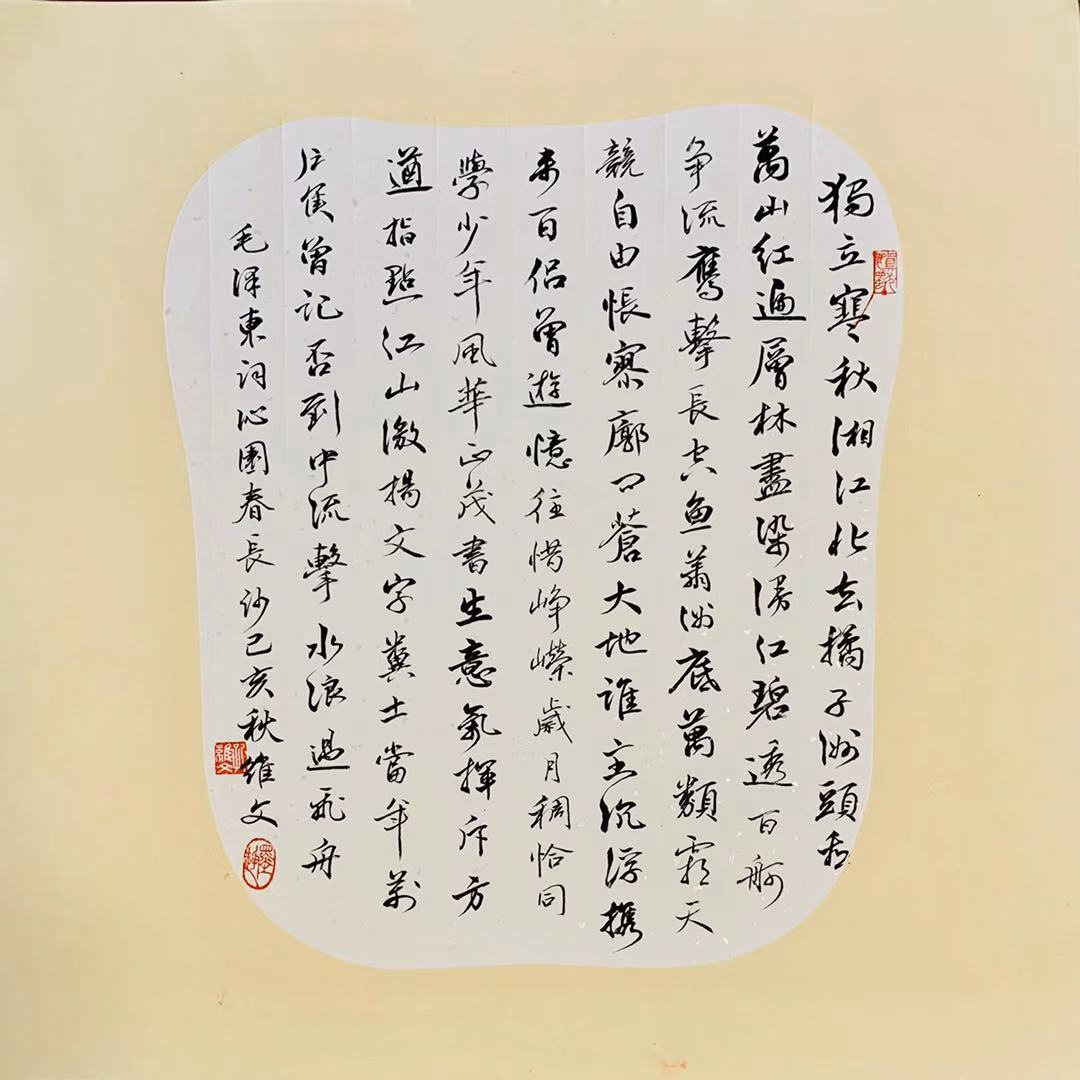 獨立寒秋湘江北去橘子洲頭看
萬山紅遍層林盡染漫江碧透百舸
争流鷹擊長空魚翔淺底萬類霜天
競自由悵寥廓问蒼大地誰主沉浮攜
来百侣曾遊憶往惜崢嶸歲月稠恰同
學少年風華正茂書生意氣揮斥方
遒指點江山激揚文字糞土當年萬
户侯曾記否到中流擊水浪遏飛舟
毛澤東詞沁園春長沙己亥秋維文